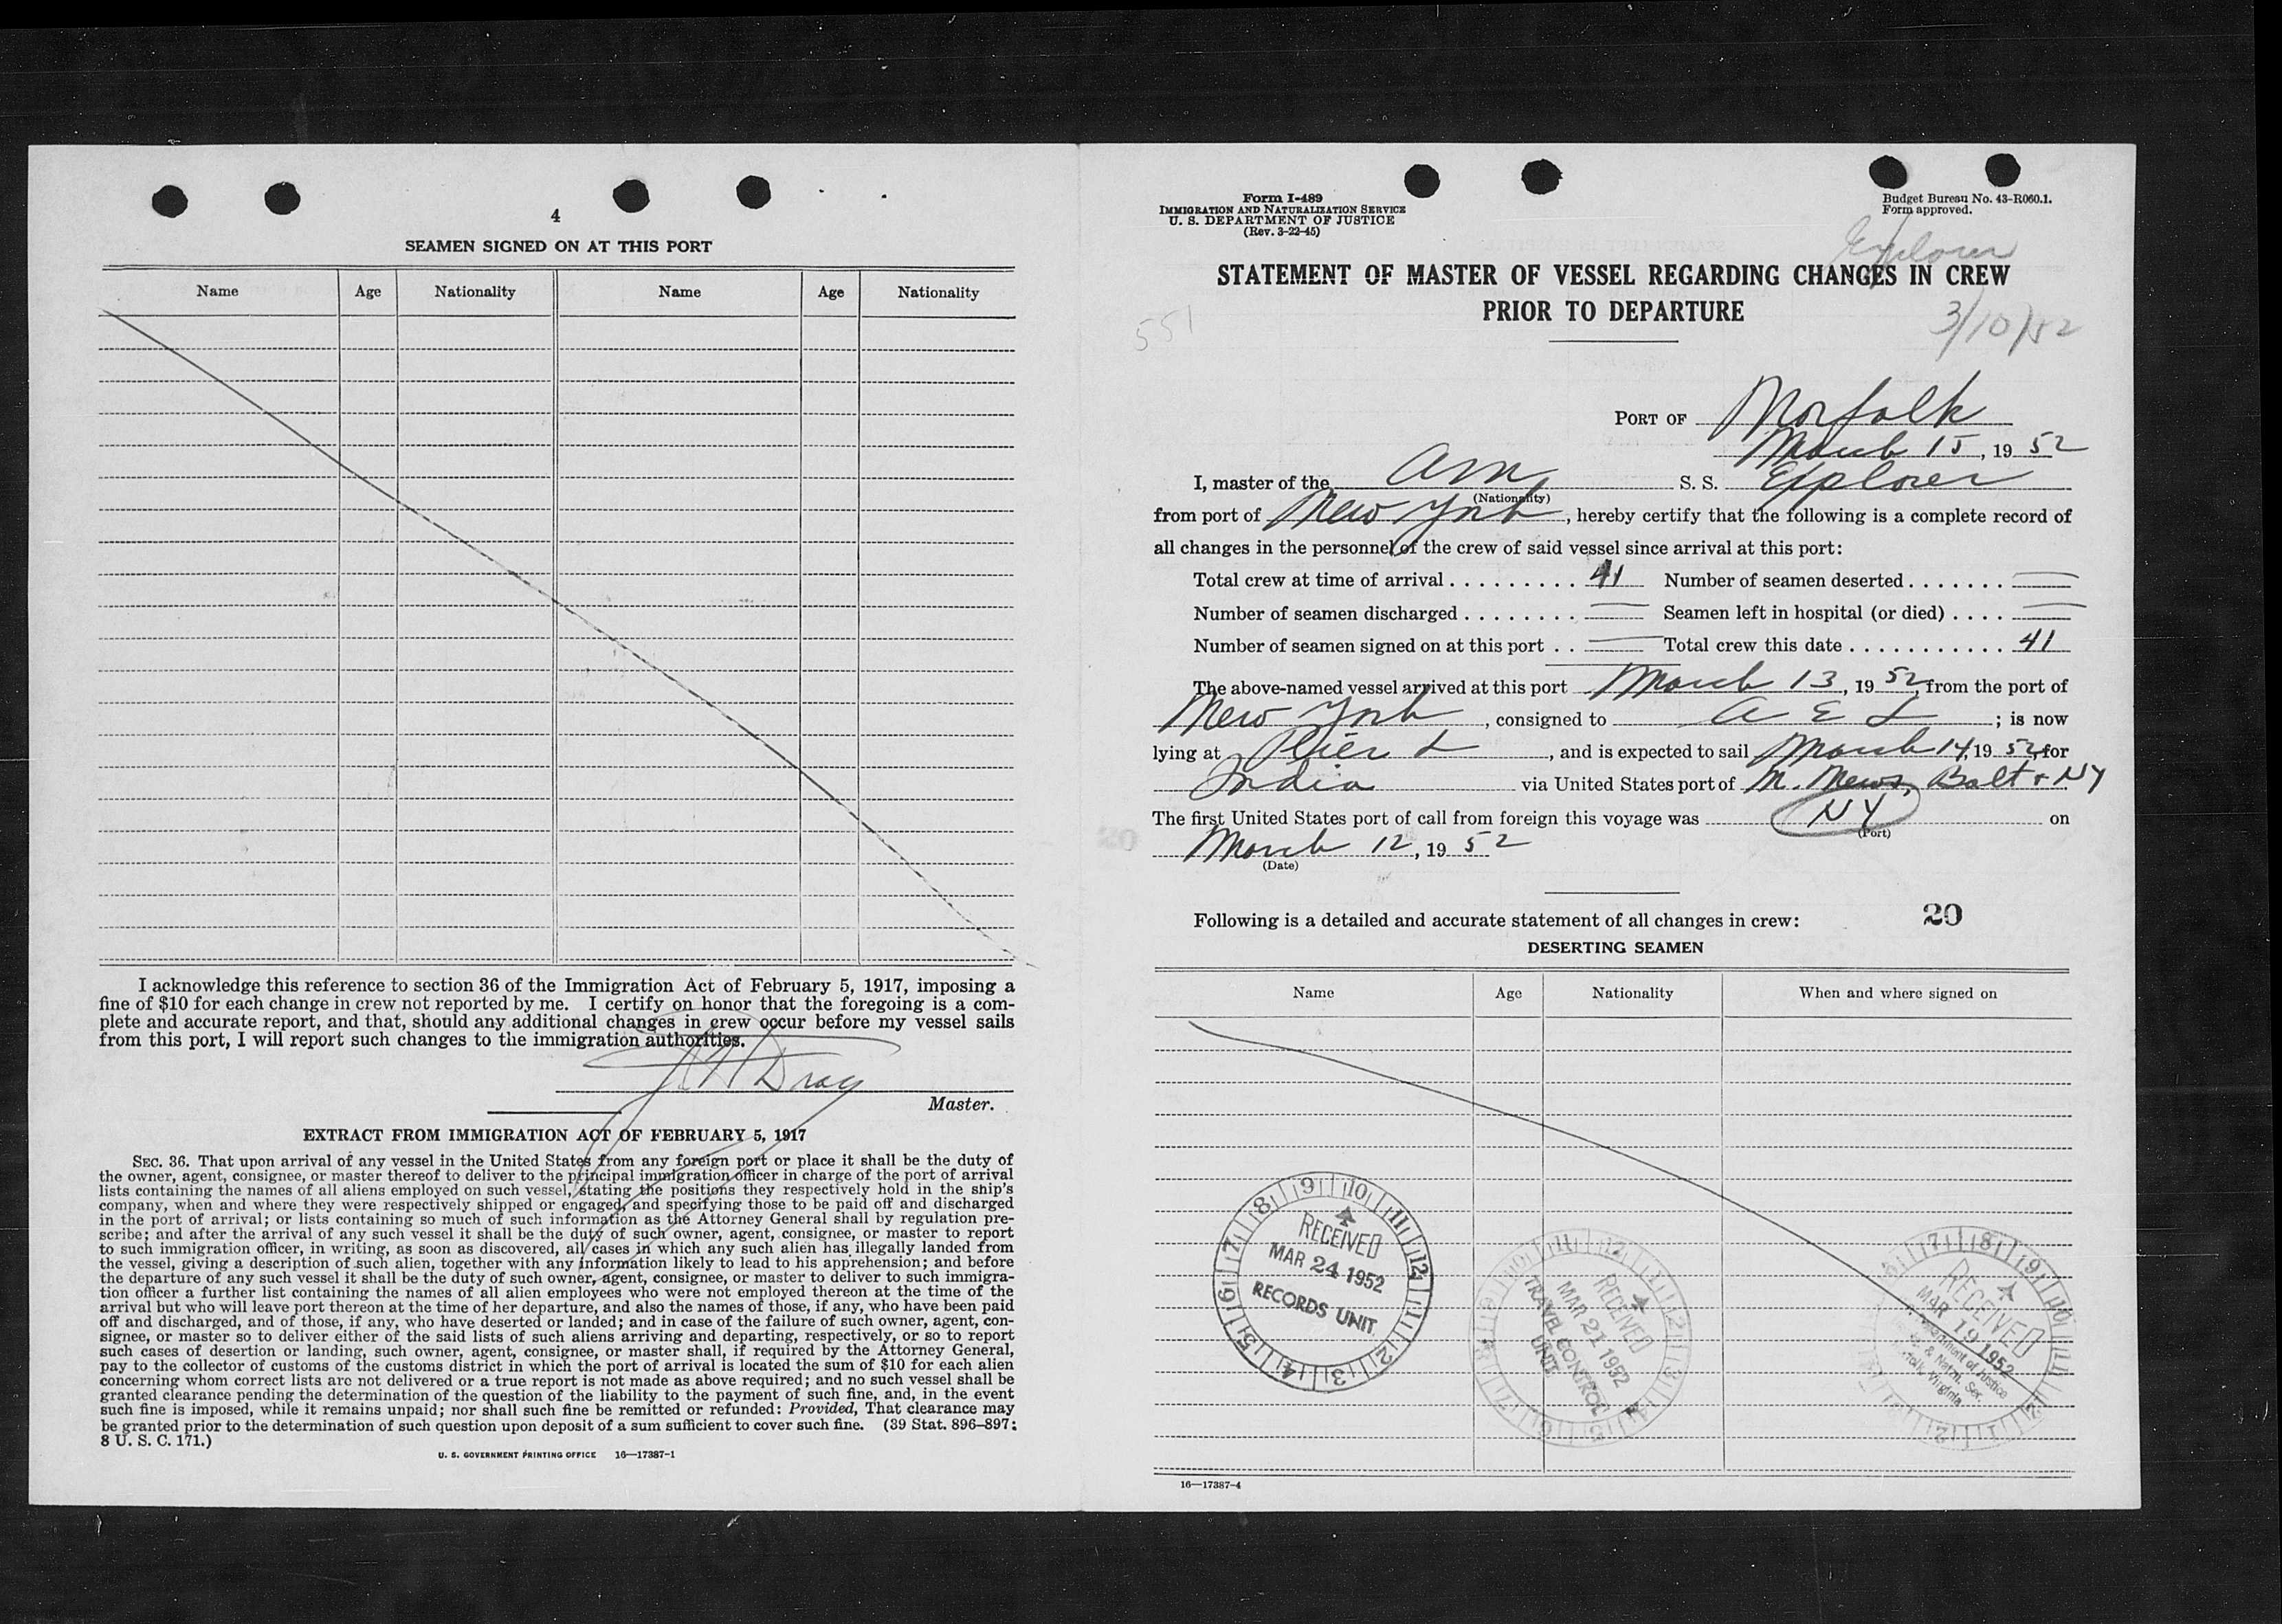 4
SEAMEN SIGNED ON AT THIS PORT
Name Age Nationality Name Age Nationality
I acknowledge this reference to section 36 of the Immigration Act of February 5, 1917, imposing a
fine of $10 for each change in crew not reported by me. I certify on honor that the foregoing is a com-
plete and accurate report, and that, should any additional changes in crew occur before my vessel sails
from this port, I will report such changes to the immigration authorities.
Master.
EXTRACT FROM IMMIGRATION ACT OF FEBRUARY 5, 1917
SEC. 36. That upon arrival of any vessel in the United States from any foreign port or place it shall be the duty of
the owner, agent, consignee, or master thereof to deliver to the principal immigration officer in charge of the port of arrival
lists containing the names of all aliens employed on such vessel, stating the positions they respectively hold in the ship's
company, when and where they were respectively shipped or engaged, and specifying those to be paid off and discharged
in the port of arrival; or lists containing so much of such information as the Attorney General shall by regulation pre-
scribe; and after the arrival of any such vessel it shall be the duty of such owner, agent, consignee, or master to report
to such immigration officer, in writing, as soon as discovered, all cases in which any such alien has illegally landed from
the vessel, giving a description of such alien, together with any information likely to lead to his apprehension; and before
the departure of any such vessel it shall be the duty of such owner, agent, consignee, or master to deliver to such immigra-
tion officer a further list containing the names of all alien employees who were not employed thereon at the time of the
arrival but who will leave port thereon at the time of her departure, and also the names of those, if any, who have been paid
off and discharged, and of those, if any, who have deserted or landed; and in case of the failure of such owner, agent, con-
signee, or master so to deliver either of the said lists of such aliens arriving and departing, respectively, or so to report
such cases of desertion or landing, such owner, agent, consignee, or master shall, if required by the Attorney General,
pay to the collector of customs of the customs district in which the port of arrival is located the sum of $10 for each alien
concerning whom correct lists are not delivered or a true report is not made as above required; and no such vessel shall be
granted clearance pending the determination of the question of the liability to the payment of such fine, and, in the event
such fine is imposed, while it remains unpaid; nor shall such fine be remitted or refunded: Provided, That clearance may
be granted prior to the determination of such question upon deposit of a sum sufficient to cover such fine. (39 Stat. 896–897;
8 U. S. C. 171.)
U. S. GOVERNMENT PRINTING OFFICE 16—17387-1
Form I-489
IMMIGRATION AND NATURALIZATION SERVICE
U. S. DEPARTMENT OF JUSTICE
(Rev. 3-22-45)
Budget Bureau No. 43-R060.1.
Form approved.
Explorer
STATEMENT OF MASTER OF VESSEL REGARDING CHANGES IN CREW
PRIOR TO DEPARTURE
551
3/10/52
PORT OF Norfolk
March 15, 19 52
I, master of the Am S. S. Explorer
(Nationality)
from port of New York, hereby certify that the following is a complete record of
all changes in the personnel of the crew of said vessel since arrival at this port:
Total crew at time of arrival . . . . . . . . . 41 Number of seamen deserted . . . . . . . —
Number of seamen discharged . . . . . . . . — Seamen left in hospital (or died) . . . . —
Number of seamen signed on at this port . . — Total crew this date . . . . . . . . . . . 41
The above-named vessel arrived at this port March 13, 19 52, from the port of
New York, consigned to A E L; is now
lying at Pier L, and is expected to sail March 14, 19 52, for
India via United States port of N. News, Balt + NY
The first United States port of call from foreign this voyage was NY on
(Port)
March 12, 19 52
(Date)
Following is a detailed and accurate statement of all changes in crew: 20
DESERTING SEAMEN
Name Age Nationality When and where signed on
RECEIVED
MAR 24 1952
RECORDS UNIT
RECEIVED
MAR 21 1952
TRAVEL CONTROL
UNIT
RECEIVED
MAR 19 1952
Department of Justice
& Natn. Ser.
Norfolk, Virginia
16—17387-4